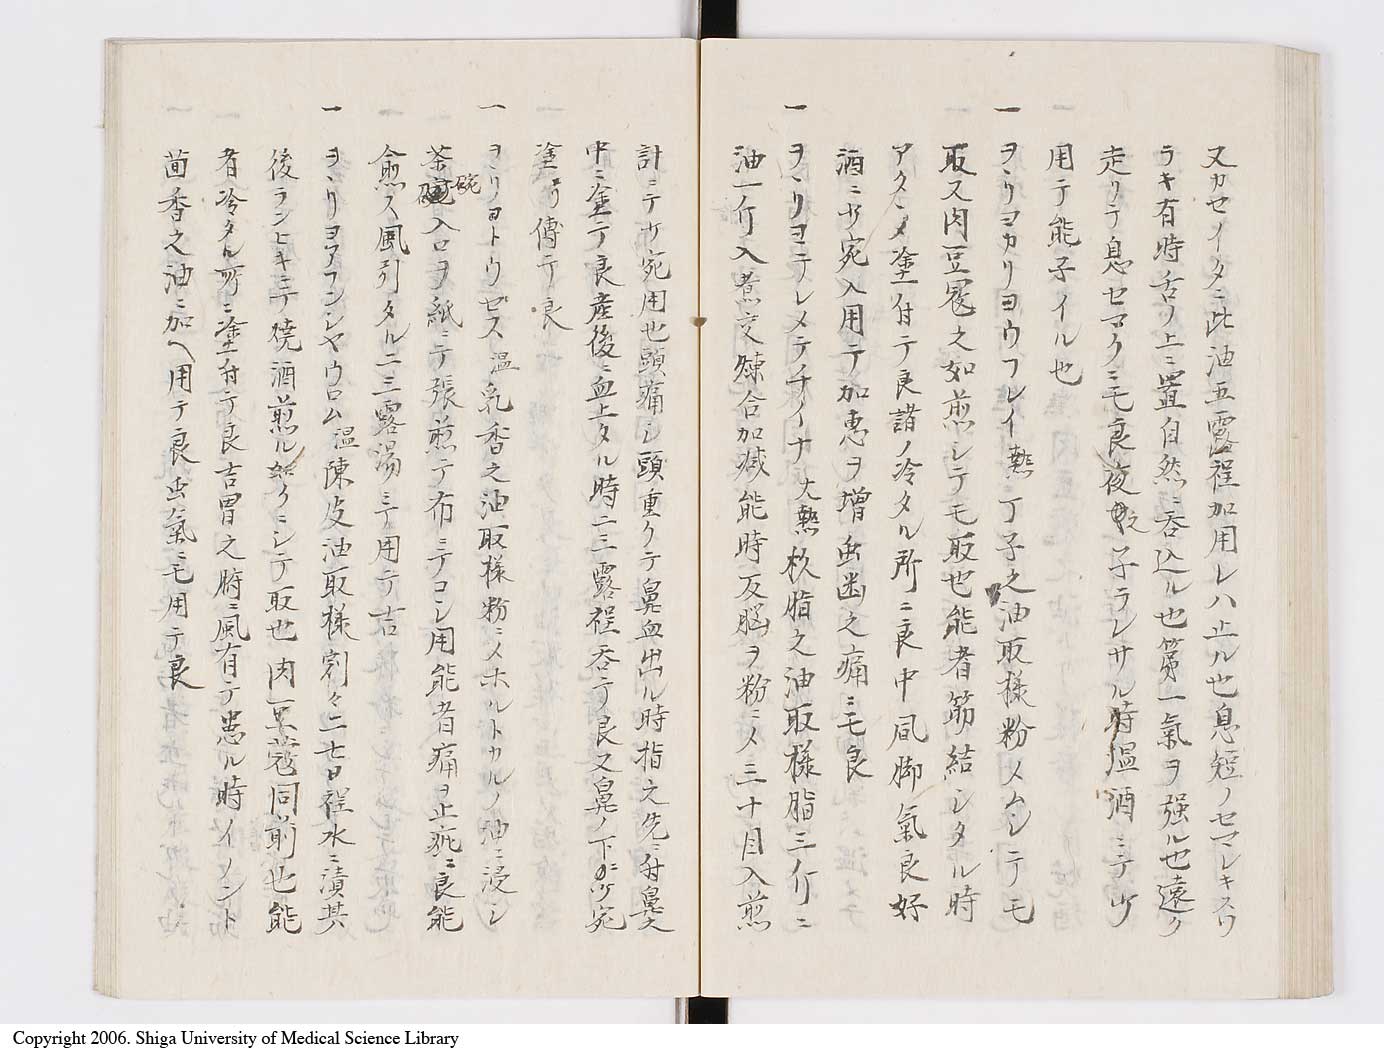 又カセイタニ此油五露程加用レハ止ル也息短ノセマレキスワ
ラキ有時舌ノ上ニ置自然ニ呑込ル也第一氣ヲ强ル也遠ク
走リテ息セマクニモ良夜 子ラレサル時温酒ニテ少
用テ能子イル也
一 ヲヽリヨカリヨウフレイ熱ニ丁子之油取様粉メムシテモ
取又肉豆蔲之如煎シテモ取也能者筋結シタル時
アタヽメ塗付テ良諸ノ冷タル所ニ良中風脚氣良好
酒ニ少宛入用テ加恵ヲ增虫歯之痛ニモ良
一 ヲヽリヨテレメテチイナ大熱松脂之油取様脂三斤ニ
油一斤入煮交煉合加减能時反脳ヲ粉ニメ三十目入煎
計ニテ少宛用也頭痛シ頭重クテ鼻血出ル時指之先ニ付鼻
中ニ塗テ良産後ニ血上タル時二三露程呑テ良又鼻ノ下ガ少宛
塗リ傳テ良
一 ヲヽリヨトウゼス温乳香之油取様粉ニメホルトカルノ油ニ浸シ
茶碗入口ヲ紙ニテ張煎テ布ニテコシ用能者痛ヲ止疵ニ良能
愈ス風引タル二三露湯ニテ用テ吉
一 ヲヽリヨアフンシヤウロム温陳皮油取様剉々二七日程水ニ漬其
後ランヒキニテ燒酒煎ル如クニシテ取也肉豆蔲同前也能
者冷タル所ニ塗付テ良吉胃之腑ニ風有テ患ル時イノント
茴香之油ニ加ヘ用テ良虫氣ニモ用テ良
Copyright 2006. Shiga University of Medical Science Library